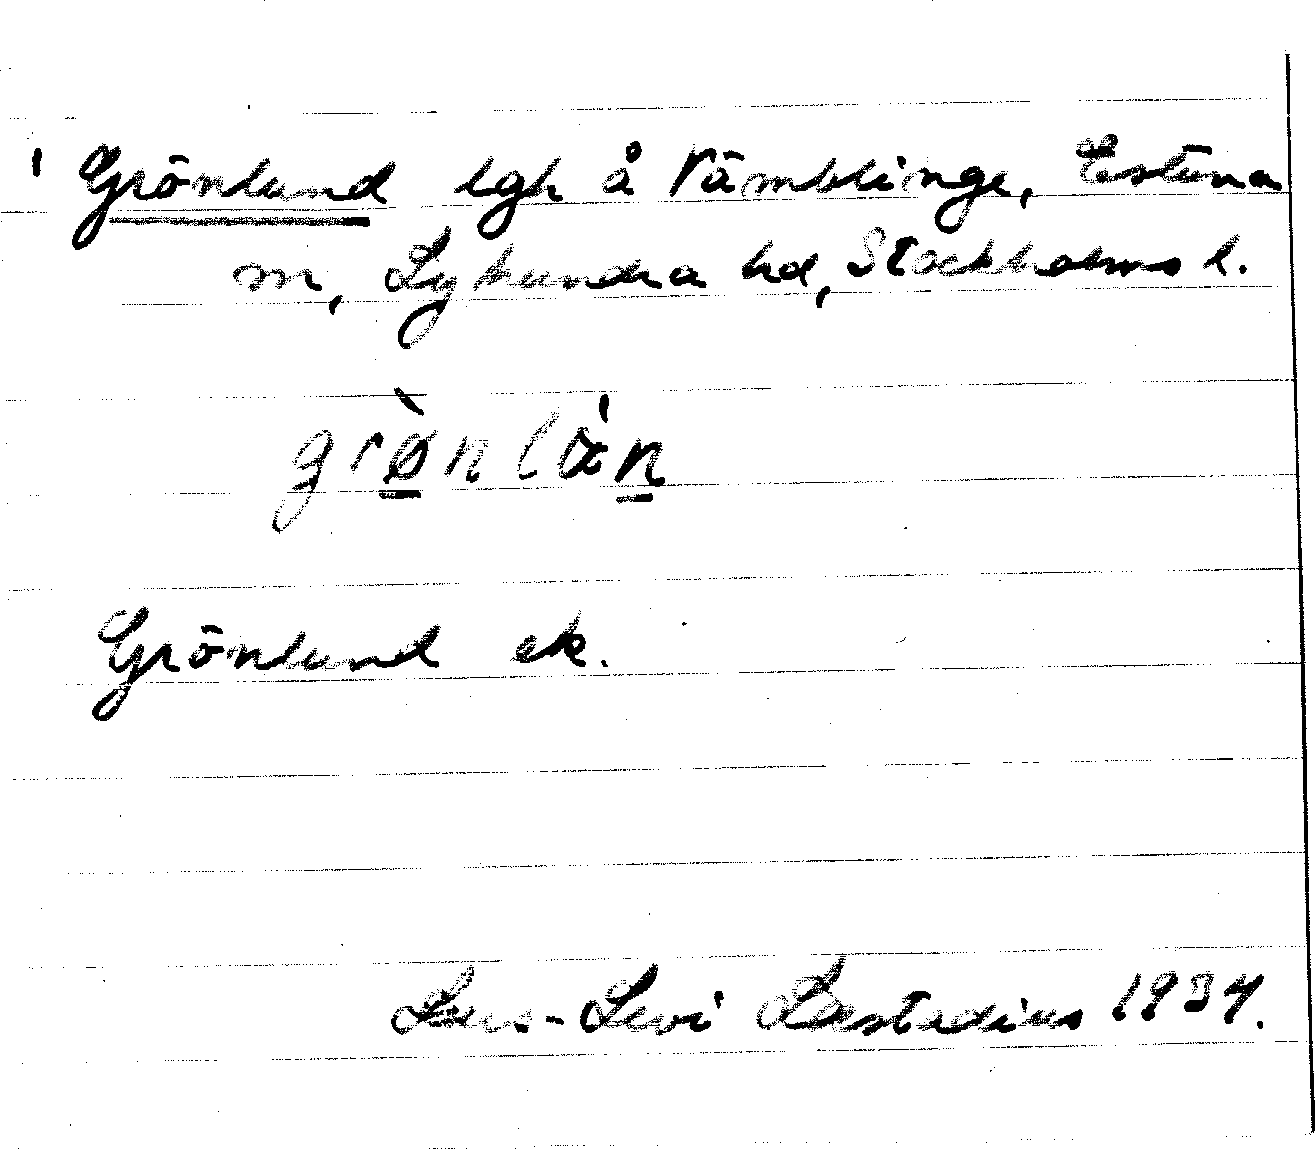 ' Grönlund lgh å Vämblinge, Estuna
m, Lyhundra hd, Stockholms l.
grø̀nlα̍n
Grönlund ek.
Lars-Levi Læstadius 1934.